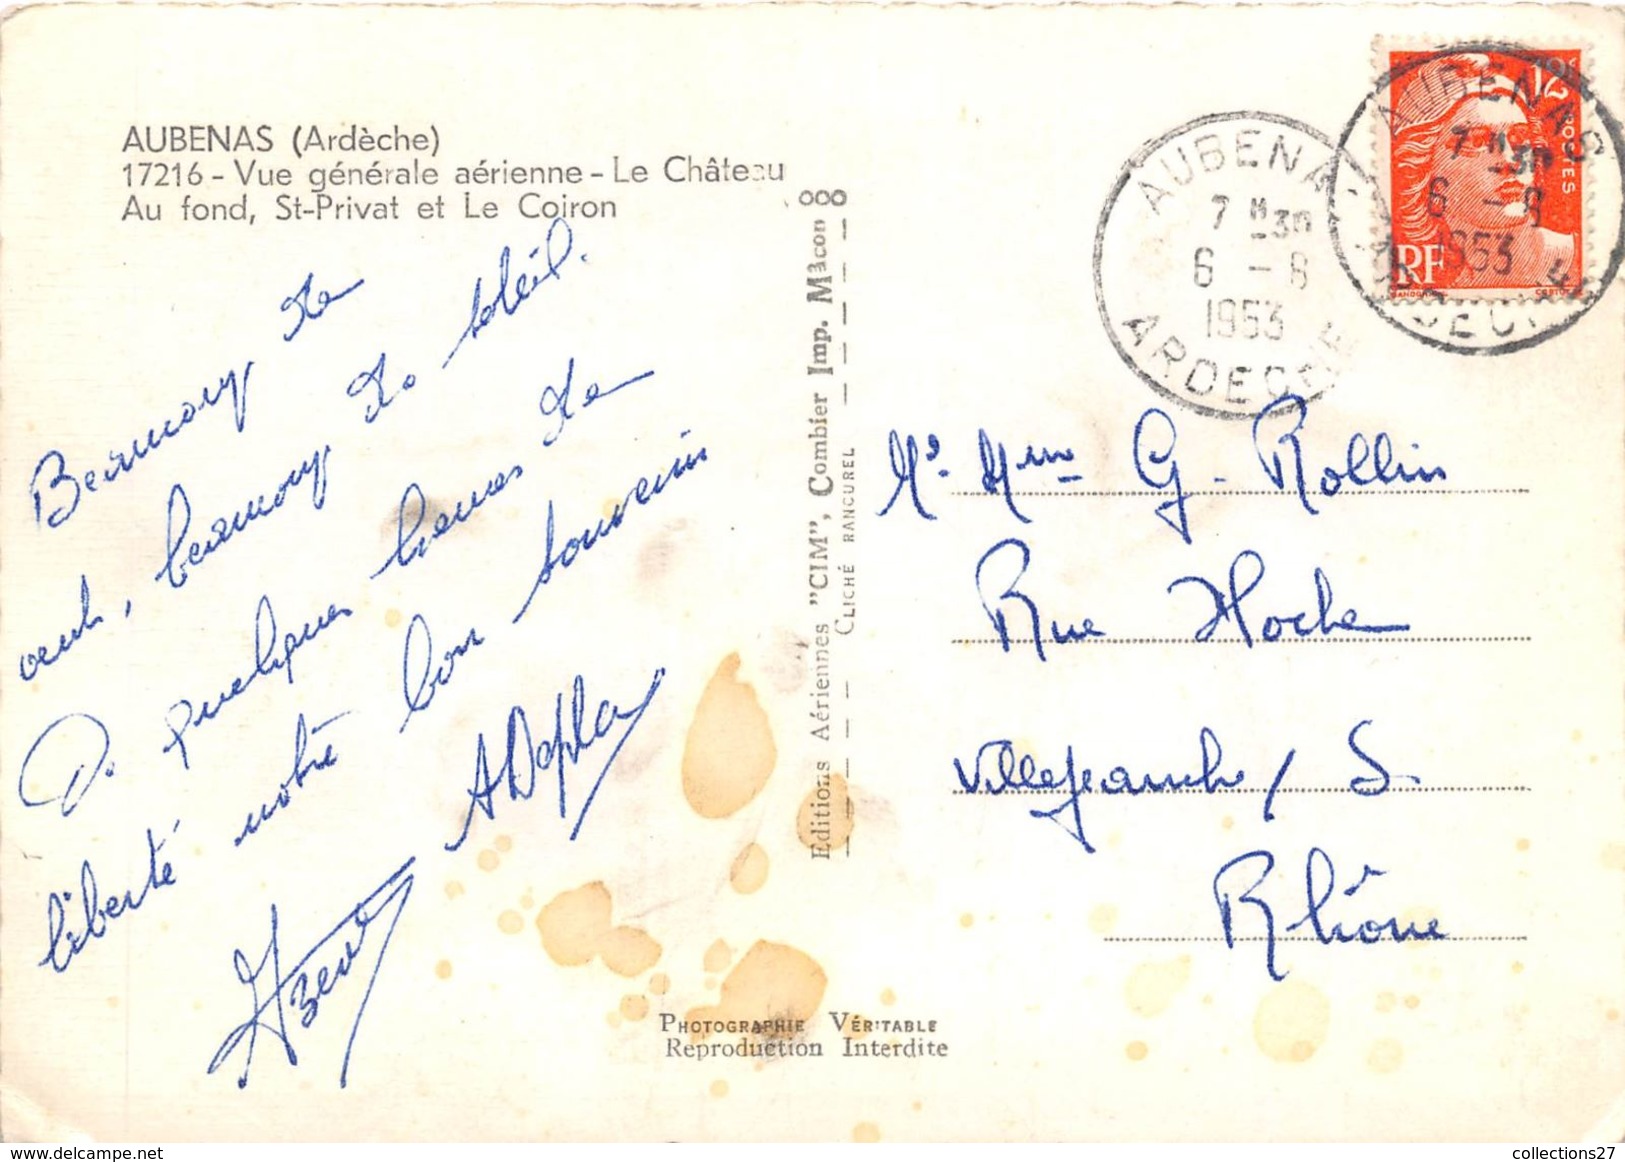 AUBENAS (Ardèche)
17216 - Vue générale aérienne - Le Château
Au fond, St-Privat et Le Coiron
Beaucoup de
vent, beaucoup de soleil.
De quelques heures de
liberté notre bon souvenir
Editions Aériennes "CIM", Combier Imp. Mâcon
CLICHÉ RANCUREL
AUBENAS
7 H 30
6 - 8
1953
ARDECHE
AUBENAS
7 H 30
6 - 8
1953
ARDECHE
12F
POSTES
RF
GANDON
Mr Mme G. Rollin
Rue Hoche
Villefranche / S
Rhône
PHOTOGRAPHIE VÉRITABLE
Reproduction Interdite
collections27